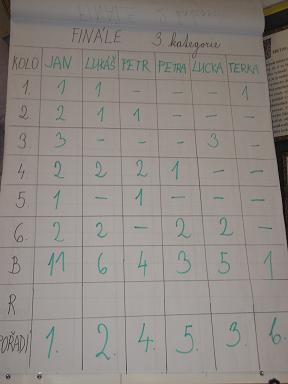 FINÁLE 3. kategorie
KOLO JAN LUKÁŠ PETR PETRA LUCKA TERKA
1. 1 1 - - - 1
2. 2 1 1 - - -
3. 3 - - - 3 -
4. 2 2 2 1 - -
5. 1 - 1 - - -
6. 2 2 - 2 2 -
B 11 6 4 3 5 1
R
POŘADÍ 1. 2. 4. 5. 3. 6.